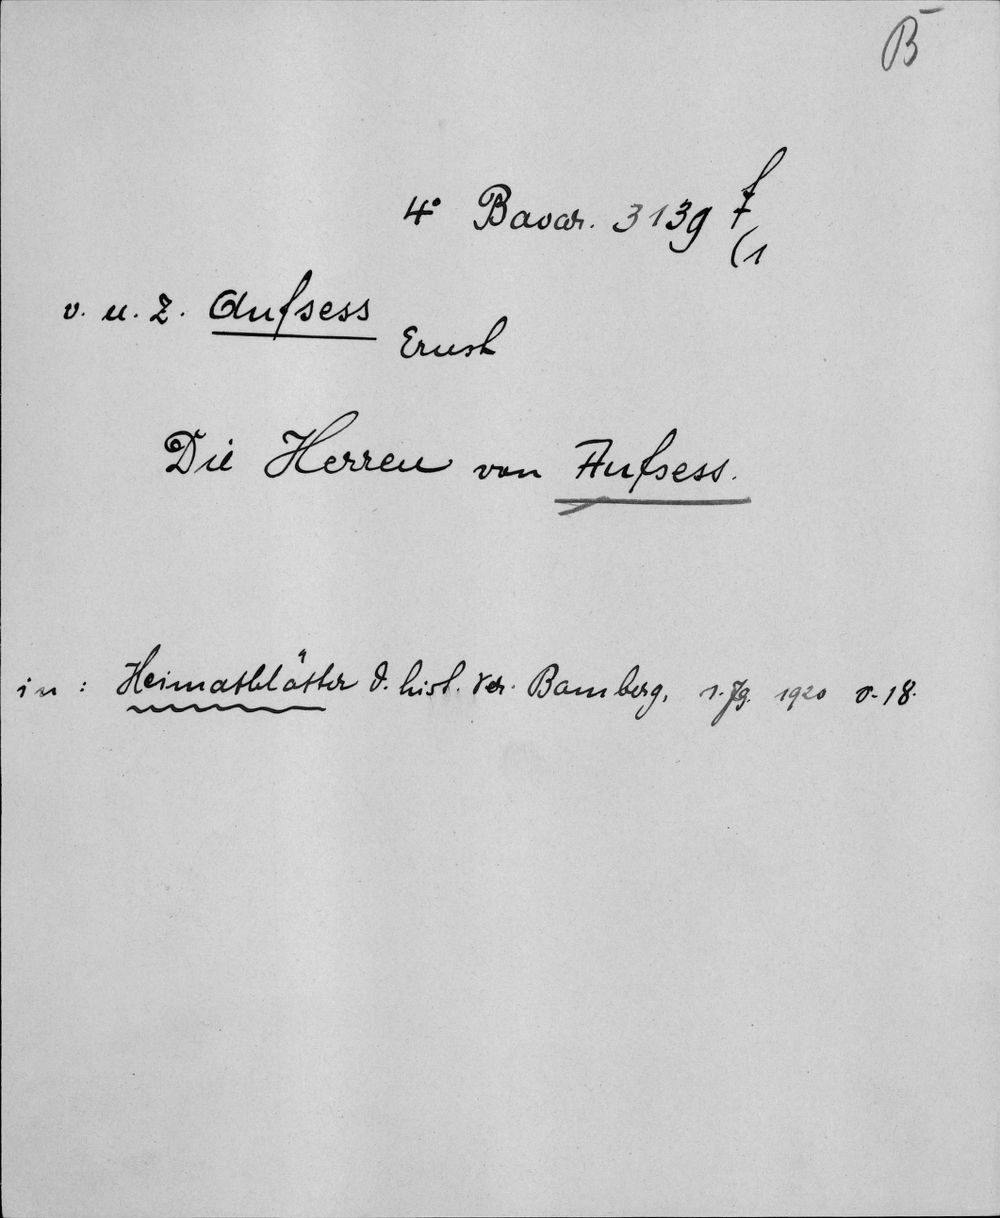 B
4° Bavar. 313g f
(1
v. u. z. Aufsess
Ernst
Die Herren von Aufsess.
in: Heimatblätter d. hist. Ver. Bamberg, 1. Jg. 1920 S. 18.